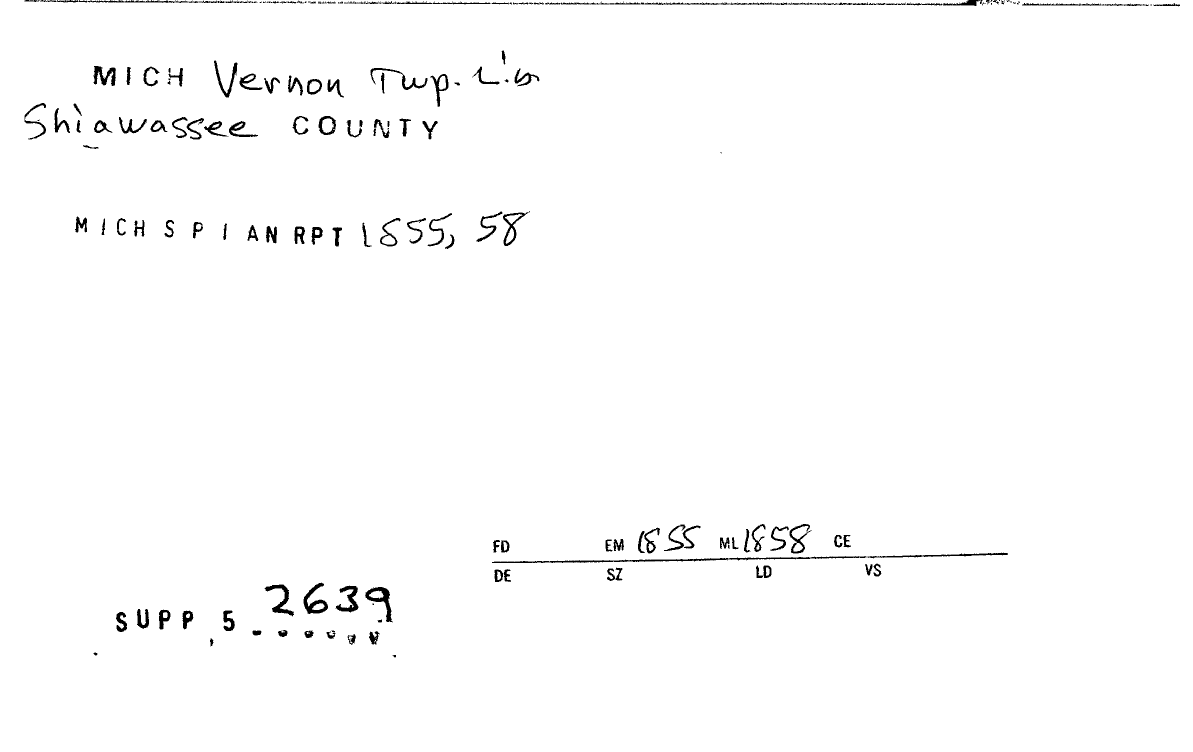 MICH Vernon Twp. Lib
Shiawassee COUNTY
MICH S P I AN RPT 1855, 58
FD EM 1855 ML 1858 CE
DE SZ LD VS
SUPP 5 2639